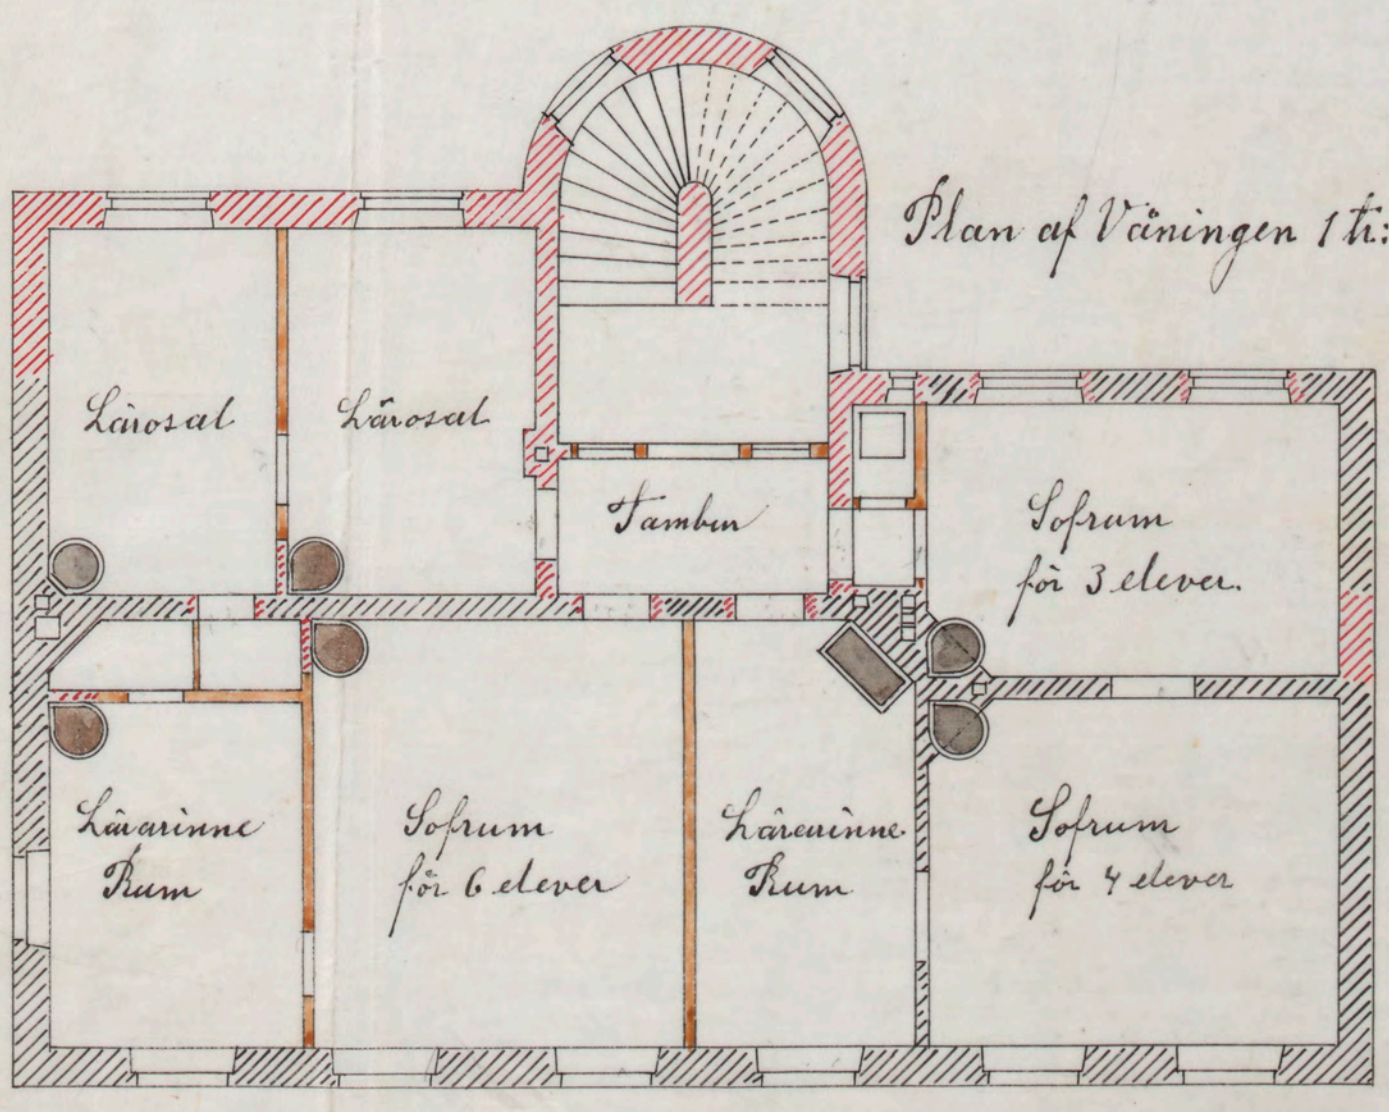 Plan af Våningen 1 tr:
Lärosal
Lärosal
Tambur
Sofrum
för 3 elever.
Lärarinne
Rum
Sofrum
för 6 elever
Lärarinne
Rum
Sofrum
för 4 elever